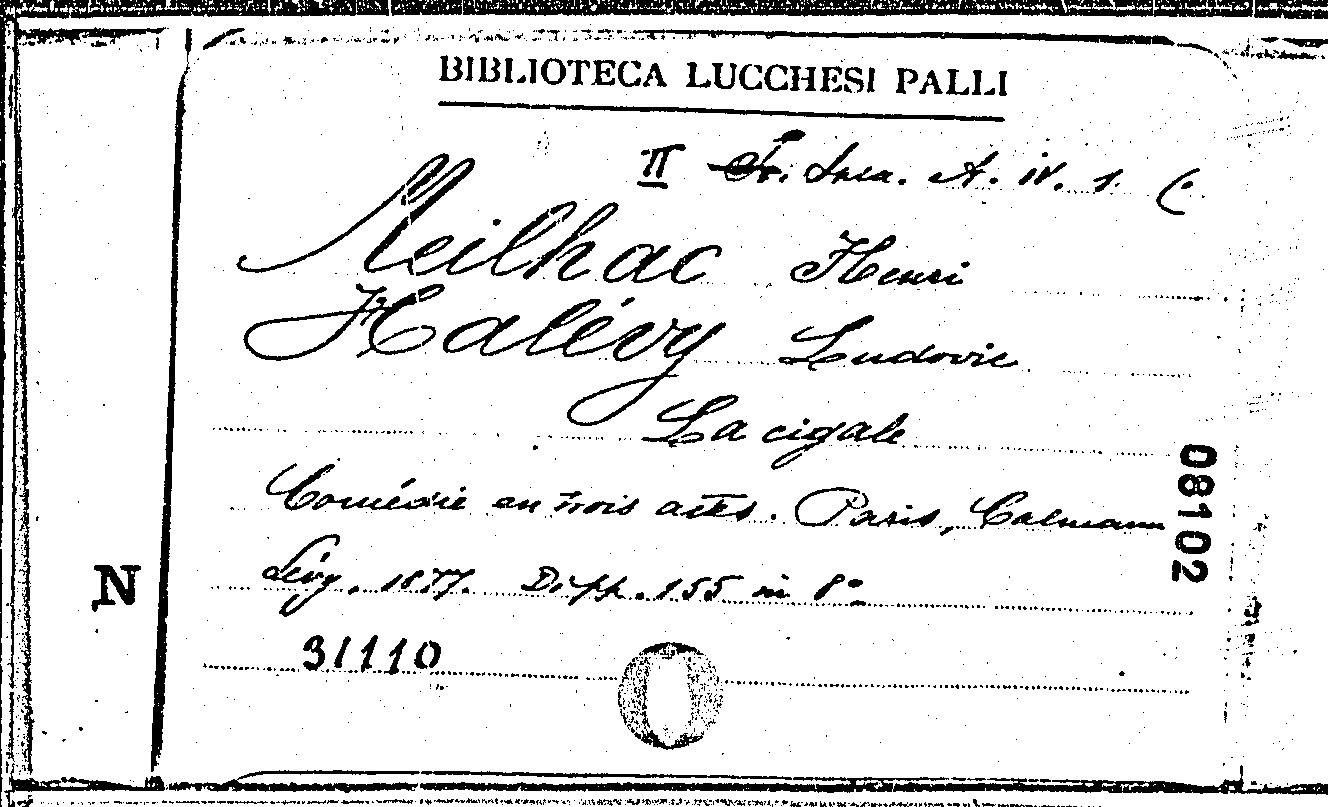 BIBLIOTECA LUCCHESI PALLI
II A. IV. 1. (.
Meilhac Henri
Halévy Ludovic
La cigale
Comédie en trois actes. Paris, Calmann
Lévy, 1877. Di pp. 155 in 8º
31110
N
08102